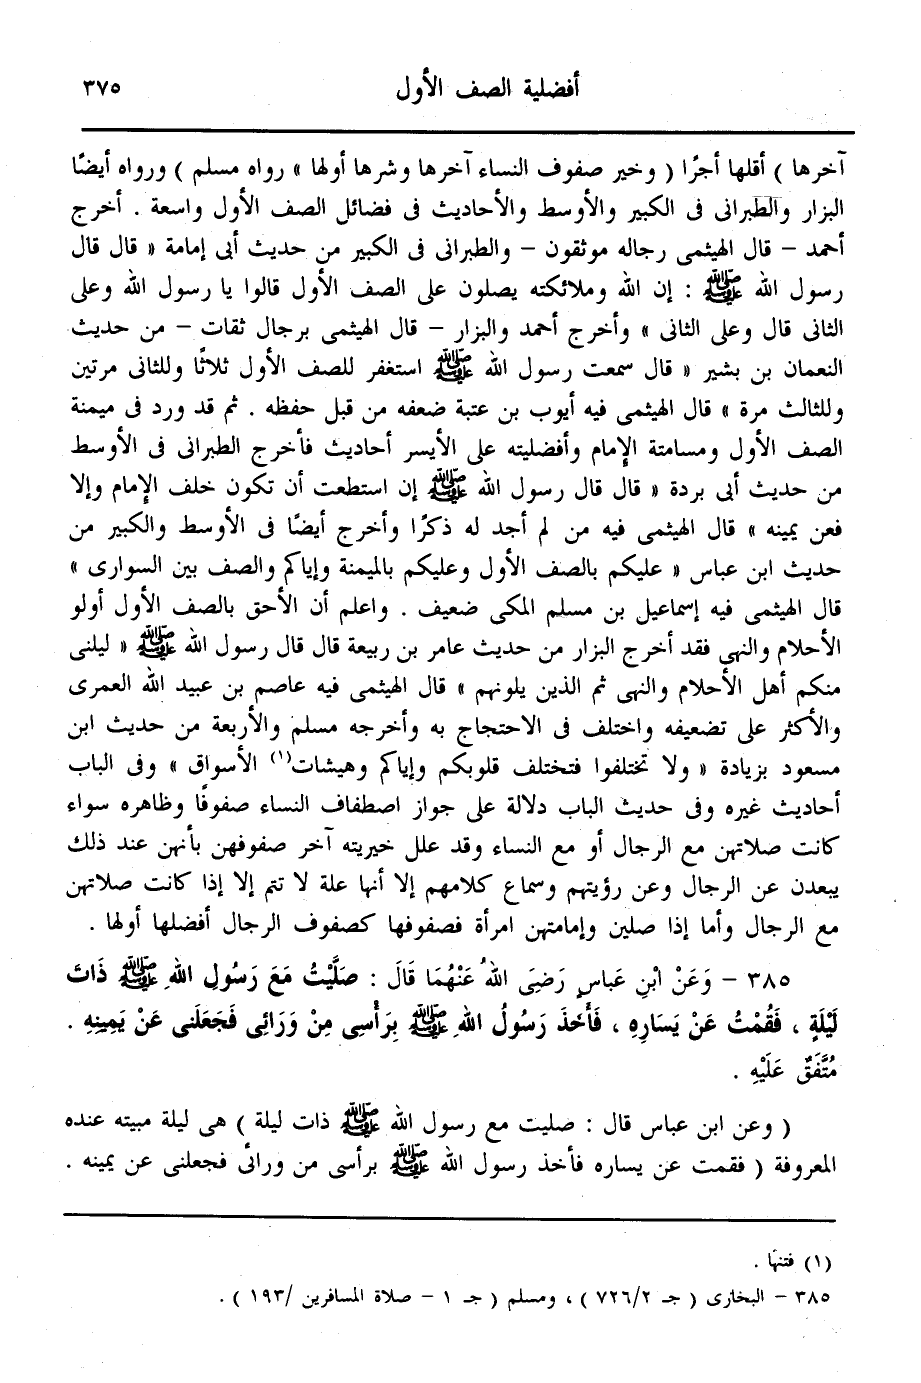 أفضلية الصف الأول ٣٧٥
آخرها ) أقلها أجرًا ( وخير صفوف النساء آخرها وشرها أولها » رواه مسلم ) ورواه أيضًا
البزار والطبرانى فى الكبير والأوسط والأحاديث فى فضائل الصف الأول واسعة . أخرج
أحمد – قال الهيثمى رجاله موثقون – والطبرانى فى الكبير من حديث أبى إمامة « قال قال
رسول الله ﷺ : إن الله وملائكته يصلون على الصف الأول قالوا يا رسول الله وعلى
الثانى قال وعلى الثانى » وأخرج أحمد والبزار – قال الهيثمى برجال ثقات – من حديث
النعمان بن بشير « قال سمعت رسول الله ﷺ استغفر للصف الأول ثلاثًا وللثانى مرتين
وللثالث مرة » قال الهيثمى فيه أيوب بن عتبة ضعفه من قبل حفظه . ثم قد ورد فى ميمنة
الصف الأول ومسامتة الإمام وأفضليته على الأيسر أحاديث فأخرج الطبرانى فى الأوسط
من حديث أبى بردة « قال قال رسول الله ﷺ إن استطعت أن تكون خلف الإمام وإلا
فعن يمينه » قال الهيثمى فيه من لم أجد له ذكرًا وأخرج أيضًا فى الأوسط والكبير من
حديث ابن عباس « عليكم بالصف الأول وعليكم بالميمنة وإياكم والصف بين السوارى »
قال الهيثمى فيه إسماعيل بن مسلم المكى ضعيف . واعلم أن الأحق بالصف الأول أولو
الأحلام والنهى فقد أخرج البزار من حديث عامر بن ربيعة قال قال رسول الله ﷺ « ليلنى
منكم أهل الأحلام والنهى ثم الذين يلونهم » قال الهيثمى فيه عاصم بن عبيد الله العمرى
والأكثر على تضعيفه واختلف فى الاحتجاج به وأخرجه مسلم والأربعة من حديث ابن
مسعود بزيادة « ولا تختلفوا فتختلف قلوبكم وإياكم وهيشات(١) الأسواق » وفى الباب
أحاديث غيره وفى حديث الباب دلالة على جواز اصطفاف النساء صفوفًا وظاهره سواء
كانت صلاتهن مع الرجال أو مع النساء وقد علل خيريته آخر صفوفهن بأنهن عند ذلك
يبعدن عن الرجال وعن رؤيتهم وسماع كلامهم إلا أنها علة لا تتم إلا إذا كانت صلاتهن
مع الرجال وأما إذا صلين وإمامتهن امرأة فصفوفها كصفوف الرجال أفضلها أولها .
٣٨٥ – وَعَنْ ابْنِ عَبَاسٍ رَضِىَ اللهُ عَنْهُمَا قَالَ : صَلَّيْتُ مَعَ رَسُولِ اللهِ ﷺ ذَاتَ
لَيْلَةٍ ، فَقُمْتُ عَنْ يَسَارِهِ ، فَأَخَذَ رَسُولُ اللهِ ﷺ بِرَأْسِى مِنْ وَرَائِى فَجَعَلَنى عَنْ يَمِينِهِ .
مُتَّفَقٌ عَلَيْهِ .
( وعن ابن عباس قال : صليت مع رسول الله ﷺ ذات ليلة ) هى ليلة مبيته عنده
المعروفة ( فقمت عن يساره فأخذ رسول الله ﷺ برأسى من ورائى فجعلنى عن يمينه .
(١) فتنها .
٣٨٥ – البخارى ( جـ ٧٢٦/٢ ) ، ومسلم ( جـ ١ – صلاة المسافرين /١٩٣ ) .